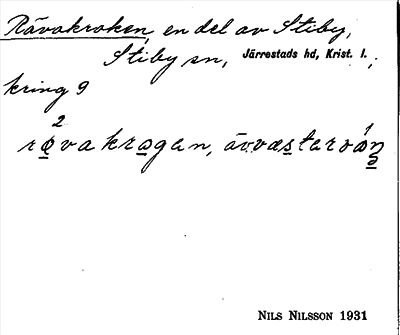 Rävakroken, en del av Stiby,
Stiby sn, Järrestads hd, Krist. l.,
kring 9
2 1
røvakrogen, ävvæstar
NILS NILSSON 1931